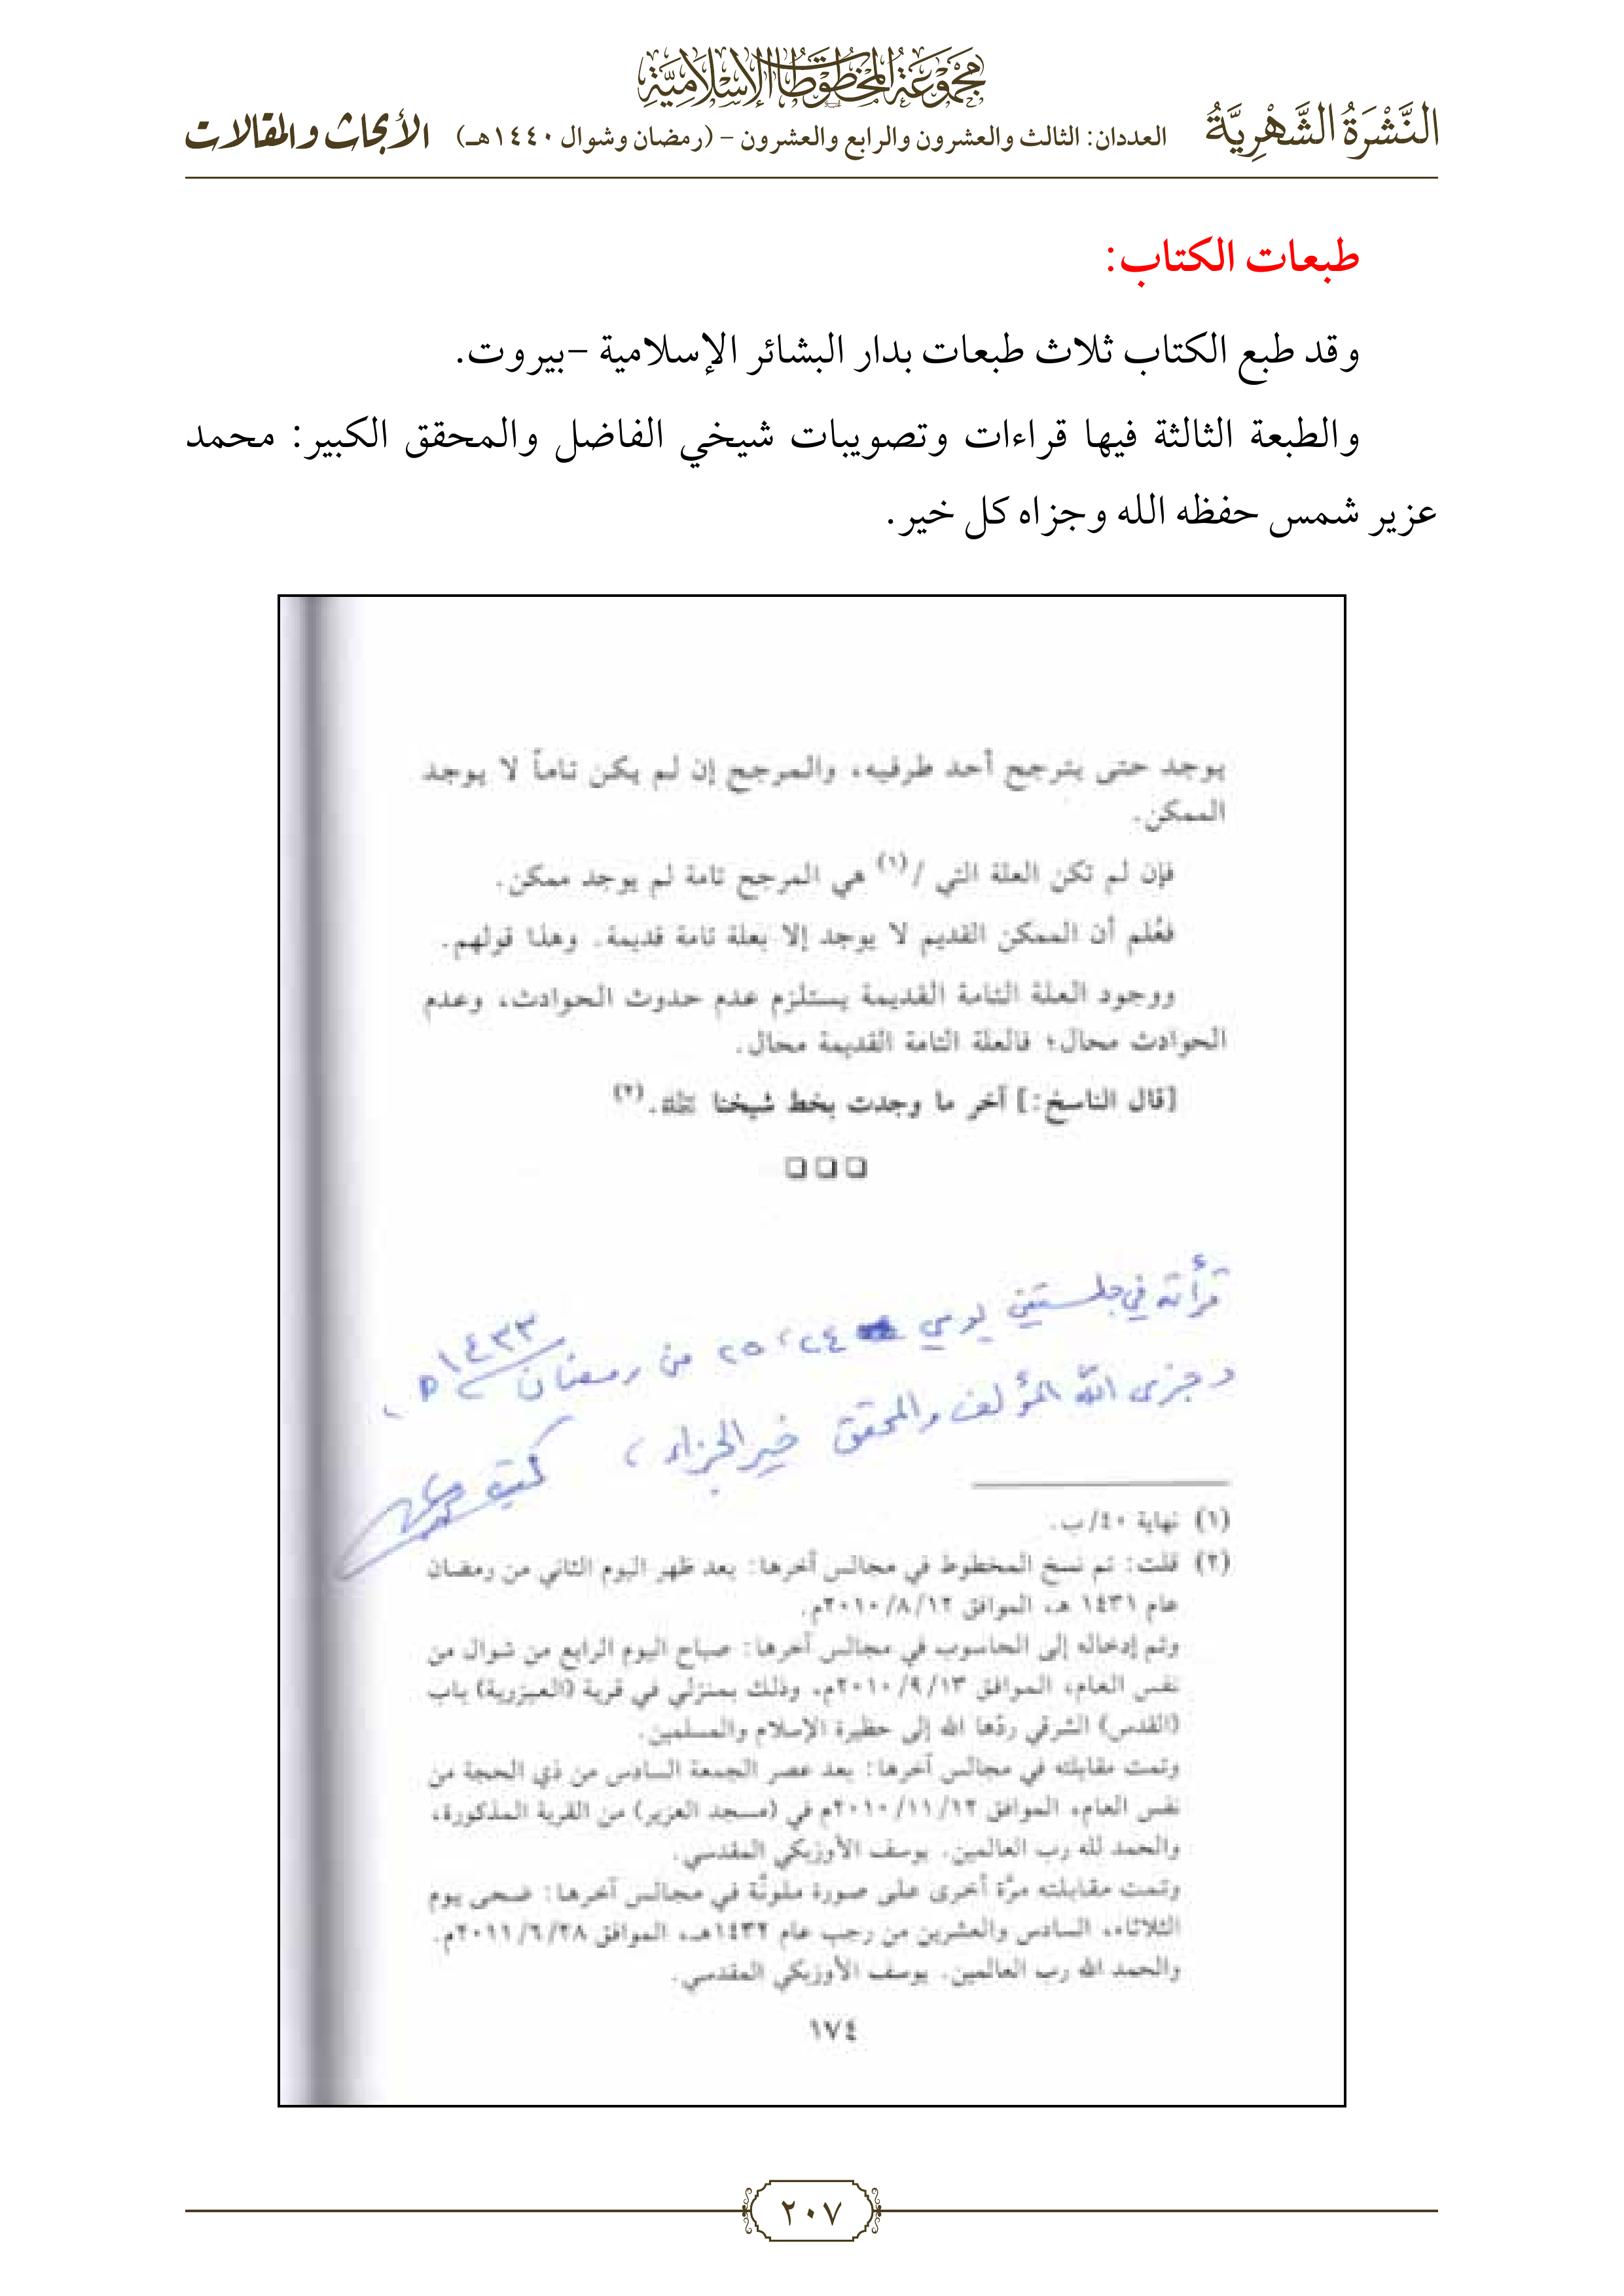 مجموعة المخطوطات الإسلامية
النَّشْرَةُ الشَّهْرِيَّةُ
العددان: الثالث والعشرون والرابع والعشرون – (رمضان وشوال ١٤٤٠هـ)
الأبحاث والمقالات
طبعات الكتاب:
وقد طبع الكتاب ثلاث طبعات بدار البشائر الإسلامية –بيروت.
والطبعة الثالثة فيها قراءات وتصويبات شيخي الفاضل والمحقق الكبير: محمد
عزير شمس حفظه الله وجزاه كل خير.
يوجد حتى يترجح أحد طرفيه، والمرجح إن لم يكن تاماً لا يوجد
الممكن.
فإن لم تكن العلة التي /(١) هي المرجح تامة لم يوجد ممكن.
فعُلم أن الممكن القديم لا يوجد إلا بعلة تامة قديمة. وهذا قولهم.
ووجود العلة التامة القديمة يستلزم عدم حدوث الحوادث، وعدم
الحوادث محال؛ فالعلة التامة القديمة محال.
[قال الناسخ:] آخر ما وجدت بخط شيخنا ﵀.(٢)
قرأته في جلستين يومي ٢٤، ٢٥ من رمضان ١٤٣٣ ه،
وجزى الله المؤلف والمحقق خير الجزاء، كتبه محمد عزير
(١) نهاية ٤٠/ب.
(٢) قلت: تم نسخ المخطوط في مجالس آخرها: بعد ظهر اليوم الثاني من رمضان
عام ١٤٣١ هـ، الموافق ١٢/ ٨/ ٢٠١٠م.
وتم إدخاله إلى الحاسوب في مجالس آخرها: صباح اليوم الرابع من شوال من
نفس العام، الموافق ١٣/ ٩/ ٢٠١٠م، وذلك بمنزلي في قرية (العيزرية) باب
(القدس) الشرقي ردّها الله إلى حظيرة الإسلام والمسلمين.
وتمت مقابلته في مجالس آخرها: بعد عصر الجمعة السادس من ذي الحجة من
نفس العام، الموافق ١٢/ ١١/ ٢٠١٠م في (مسجد العزير) من القرية المذكورة،
والحمد لله رب العالمين. يوسف الأوزبكي المقدسي.
وتمت مقابلته مرَّة أخرى على صورة ملونَّة في مجالس آخرها: ضحى يوم
الثلاثاء، السادس والعشرين من رجب عام ١٤٣٢هـ، الموافق ٢٨/ ٦/ ٢٠١١م.
والحمد الله رب العالمين. يوسف الأوزبكي المقدسي.
١٧٤
٢٠٧